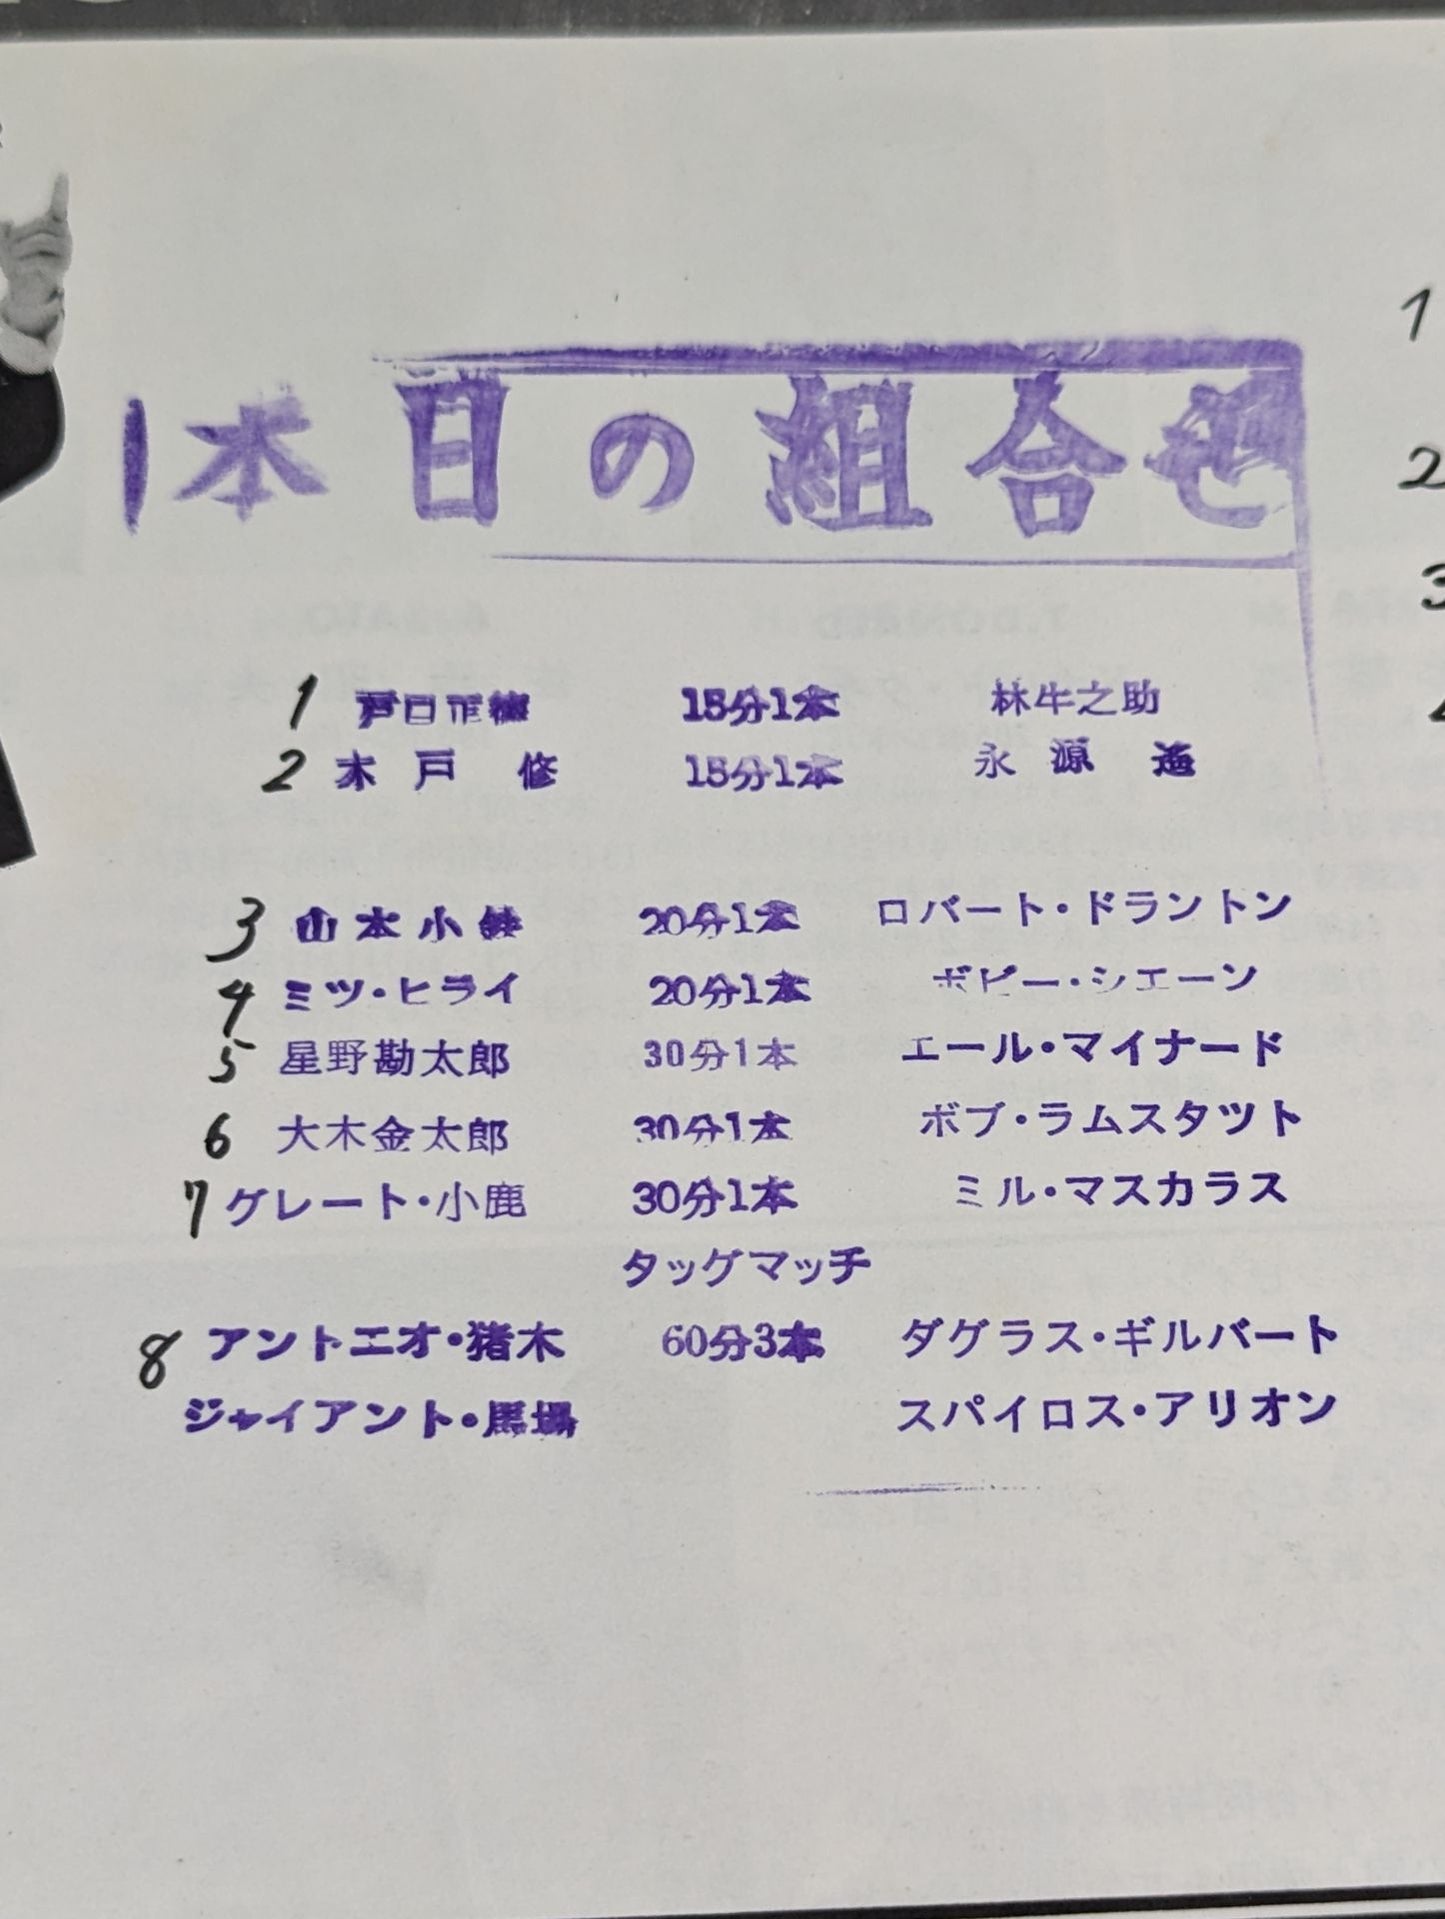 本日の組合せ
1 戸口正徳 15分1本 林牛之助
2 木戸 修 15分1本 永源 遥
3 山本小鉄 20分1本 ロバート・ドラントン
4 ミツ・ヒライ 20分1本 ボビー・シエーン
5 星野勘太郎 30分1本 エール・マイナード
6 大木金太郎 30分1本 ボブ・ラムスタツト
7 グレート・小鹿 30分1本 ミル・マスカラス
タッグマッチ
8 アントニオ・猪木 60分3本 ダグラス・ギルバート
ジャイアント・馬場 スパイロス・アリオン
1
2
3